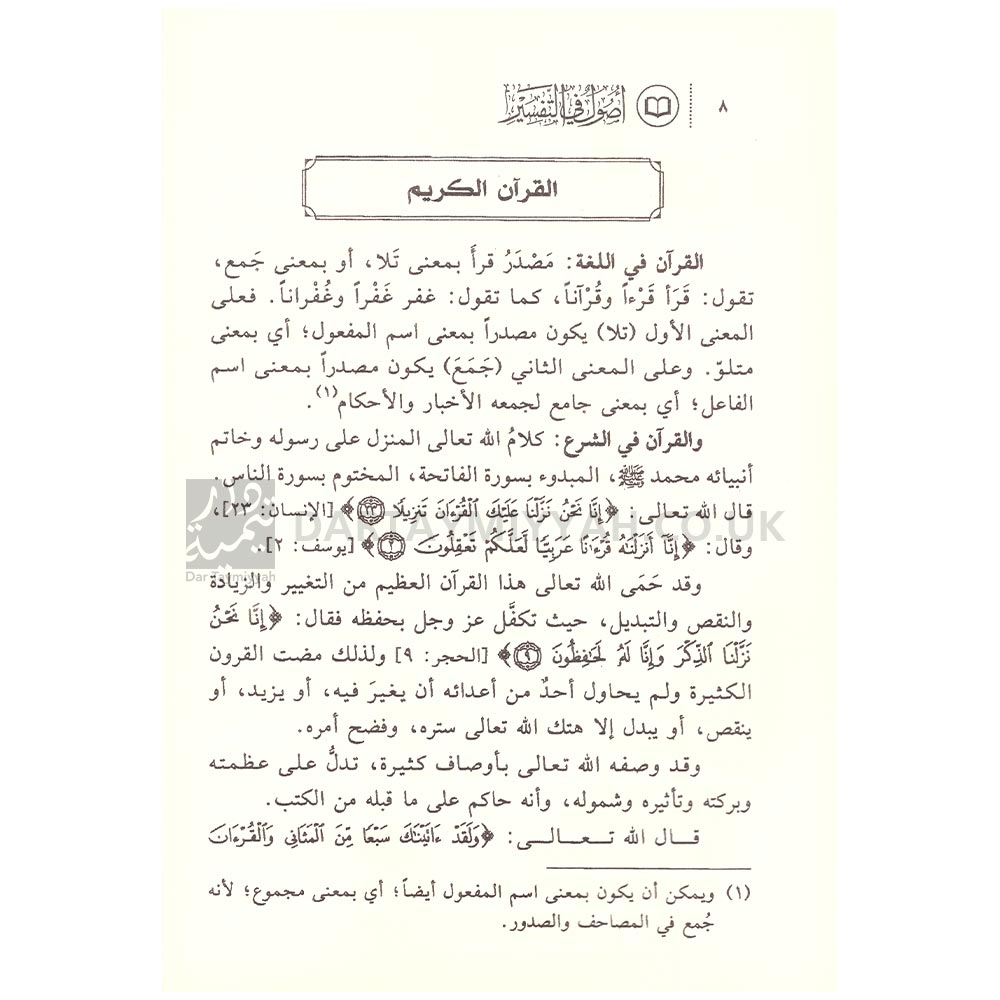 ٨
أصول في التفسير
القرآن الكريم
القرآن في اللغة: مَصْدَرُ قرأَ بمعنى تَلا، أو بمعنى جَمع،
تقول: قَرَأ قَرْءاً وقُرْآناً، كما تقول: غفر غَفْراً وغُفْراناً. فعلى
المعنى الأول (تلا) يكون مصدراً بمعنى اسم المفعول؛ أي بمعنى
متلوّ. وعلى المعنى الثاني (جَمَعَ) يكون مصدراً بمعنى اسم
الفاعل؛ أي بمعنى جامع لجمعه الأخبار والأحكام(١).
والقرآن في الشرع: كلامُ الله تعالى المنزل على رسوله وخاتم
أنبيائه محمد ﷺ، المبدوء بسورة الفاتحة، المختوم بسورة الناس.
قال الله تعالى: ﴿إِنَّا نَحْنُ نَزَّلْنَا عَلَيْكَ ٱلْقُرْءَانَ تَنزِيلًا ٢٣﴾ [الإنسان: ٢٣]،
وقال: ﴿إِنَّآ أَنزَلْنَٰهُ قُرْءَٰنًا عَرَبِيًّا لَّعَلَّكُمْ تَعْقِلُونَ ٢﴾ [يوسف: ٢].
DARTAYMIYYAH.CO.UK
تيمية
Dar Taymiyyah
وقد حَمَى الله تعالى هذا القرآن العظيم من التغيير والزيادة
والنقص والتبديل، حيث تكفَّل عز وجل بحفظه فقال: ﴿إِنَّا نَحْنُ
نَزَّلْنَا ٱلذِّكْرَ وَإِنَّا لَهُۥ لَحَٰفِظُونَ ٩﴾ [الحجر: ٩] ولذلك مضت القرون
الكثيرة ولم يحاول أحدٌ من أعدائه أن يغيرَ فيه، أو يزيد، أو
ينقص، أو يبدل إلا هتك الله تعالى ستره، وفضح أمره.
وقد وصفه الله تعالى بأوصاف كثيرة، تدلُّ على عظمته
وبركته وتأثيره وشموله، وأنه حاكم على ما قبله من الكتب.
قال الله تعالى: ﴿وَلَقَدْ ءَاتَيْنَٰكَ سَبْعًا مِّنَ ٱلْمَثَانِى وَٱلْقُرْءَانَ
(١) ويمكن أن يكون بمعنى اسم المفعول أيضاً؛ أي بمعنى مجموع؛ لأنه
جُمع في المصاحف والصدور.